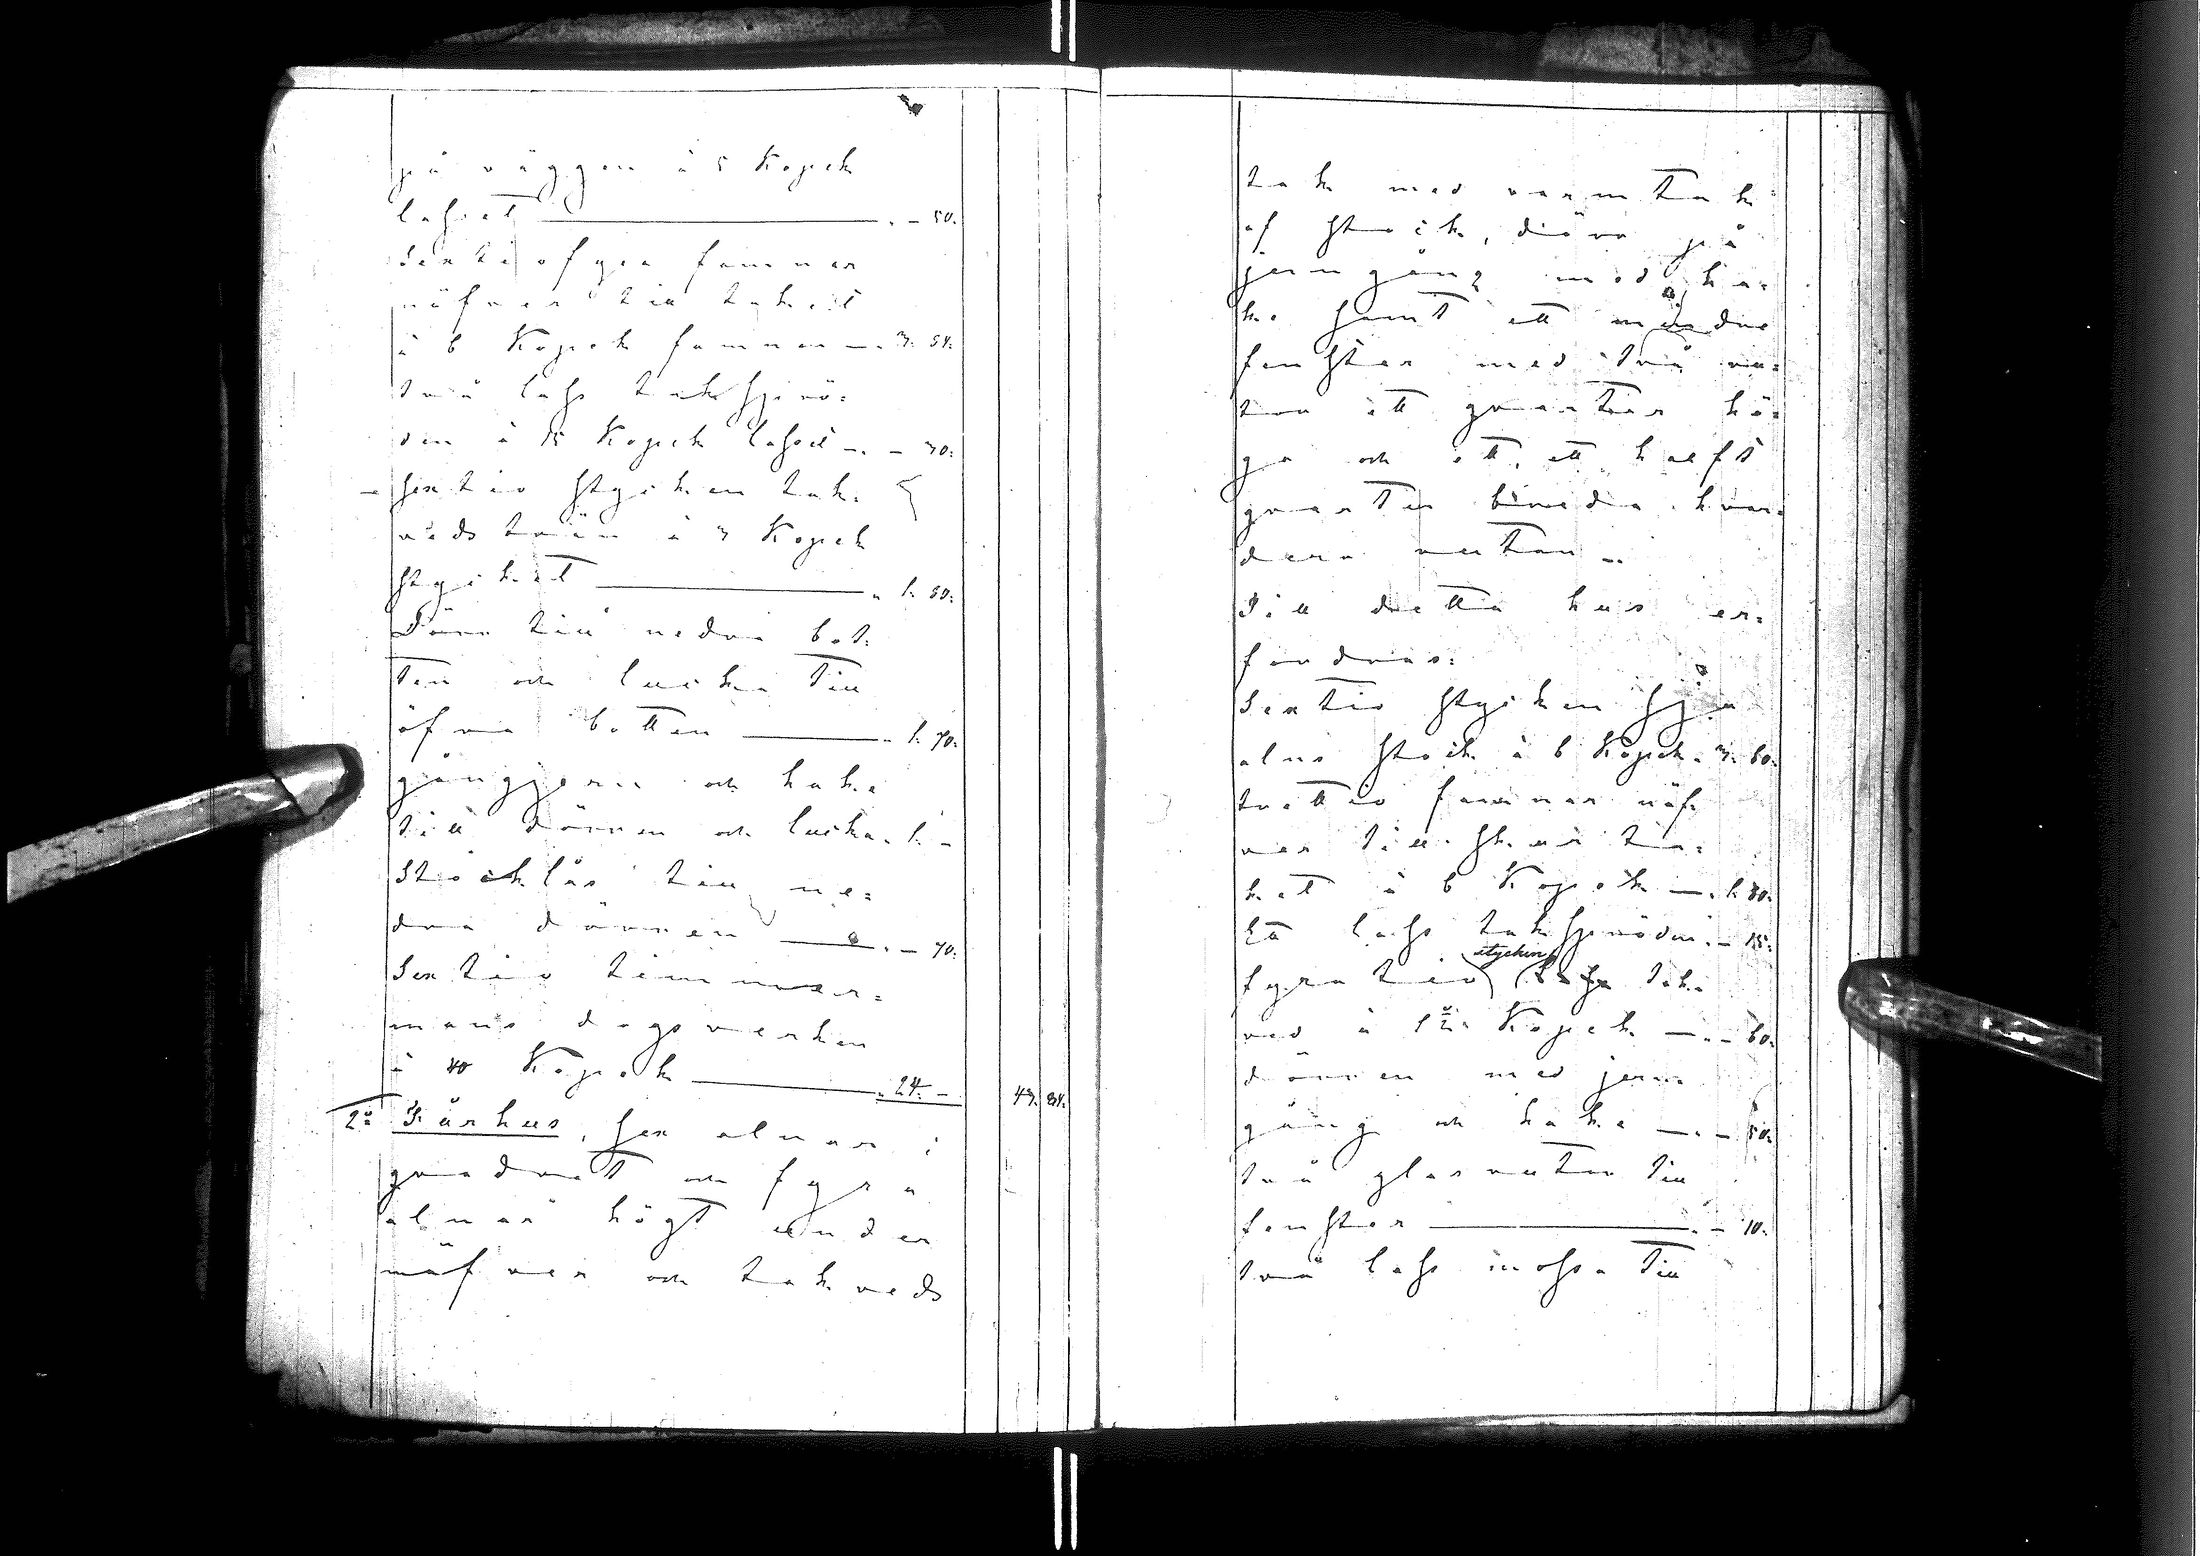 på väggen à 5 Kopek
lasset — . – 50.
Sextiofyra famnar
näfver till taket
à 6 Kopek famnen — . 3. 84.
två lass taksprö=
den à 15 Kopek lasset — . – 30.
sextio stycken tak=
vedsträn à 3 Kopek
stycket — . 1. 80.
Dörr till nedra bot=
ten och lucka till
öfra botten — . 1. 70.
gångjern och hake
till dörren och lucka . 1. –
Stocklås till ne=
dra dörren — . – 70.
Sextio timmer=
mans dagsverken
à 40 Kopek — . 24. – 43. 84.
2:o Fårhus, sex alnar i
quadrat och fyra
alnar högt under
näfver och takveds
tak med varmtak
af stock, dörr på
jerngång med ha=
ke samt ett mindre
fenster med två ru=
tor ett qvarter hö=
ga och ett, ett halft
qvarter breda hvar=
dera rutan.
Till detta hus er=
fordras:
Sextio stycken sju
alns stock à 6 Kopek . 3. 60.
trettio famnar näf=
ver till yttertа=
ket à 6 Kopek — . 1. 80.
Ett lass takspröden . – 15.
fyratio stycken tak=
ved à 1 1/2 Kopek — . – 60.
dörren med jern=
gång och hake — . – 50.
två glasrutor till
fenster — . – 10.
två lass mossa till